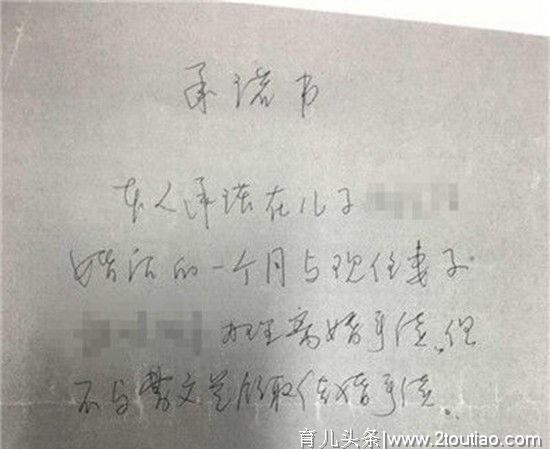 承诺书
本人承诺在儿子
婚后的一个月与现任妻子
办理离婚手续,但
不与曹文兰领取结婚手续.
育儿头条/www.2toutiao.com